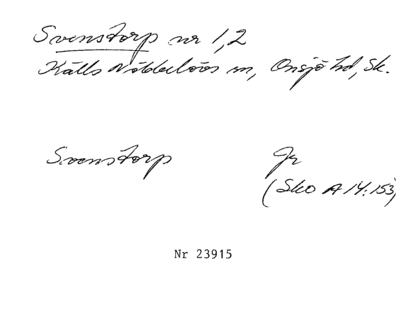 Svenstorp nr 1,2
Källs Nöbbelövs sn, Onsjö hd, Sk.
Svenstorp Jr
(Sko A 14:153)
Nr 23915